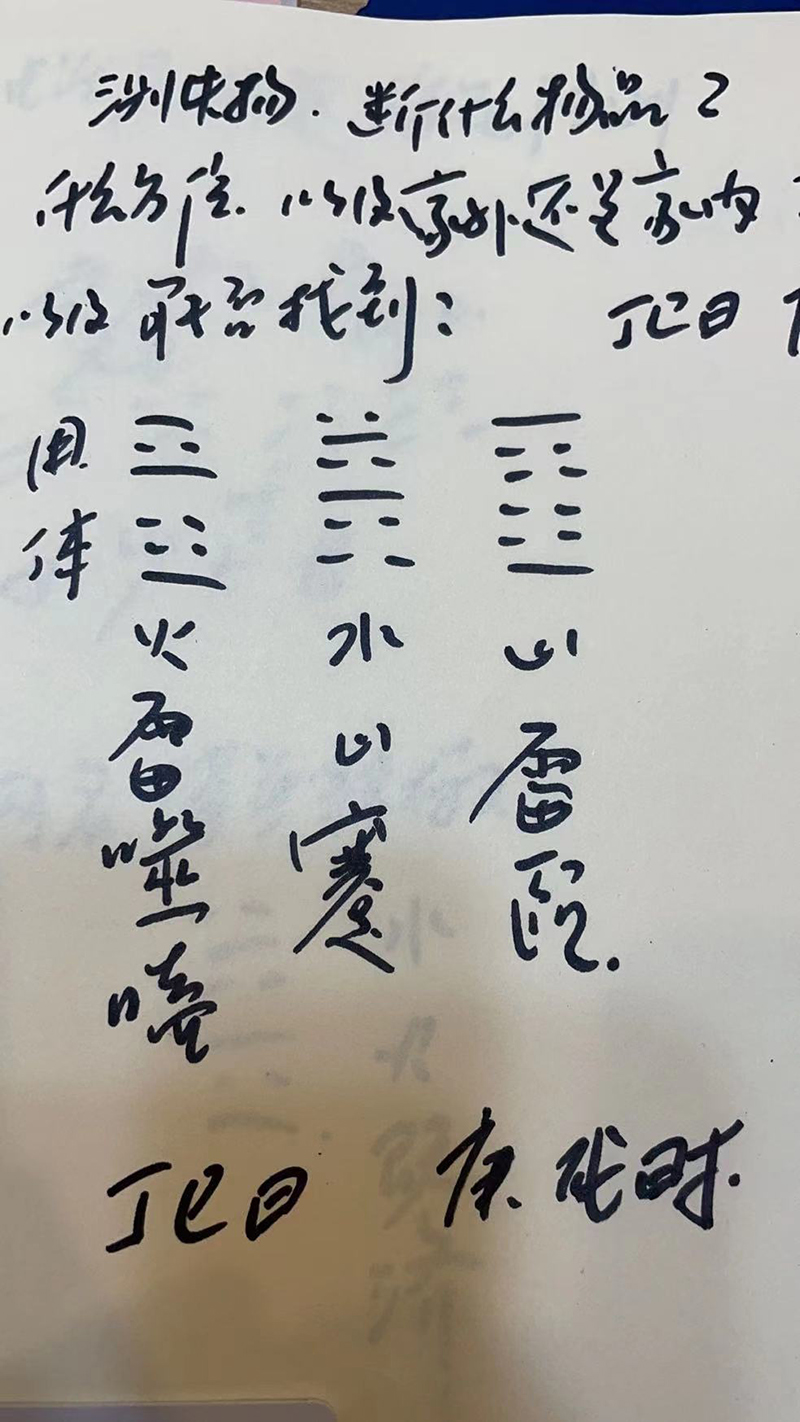 测失物.断什么物品?
什么方位.以及家外还是家内
以及能否找到: 丁巳日
用
体
火雷噬嗑 水山蹇 山雷颐.
丁巳日 庚戌时.